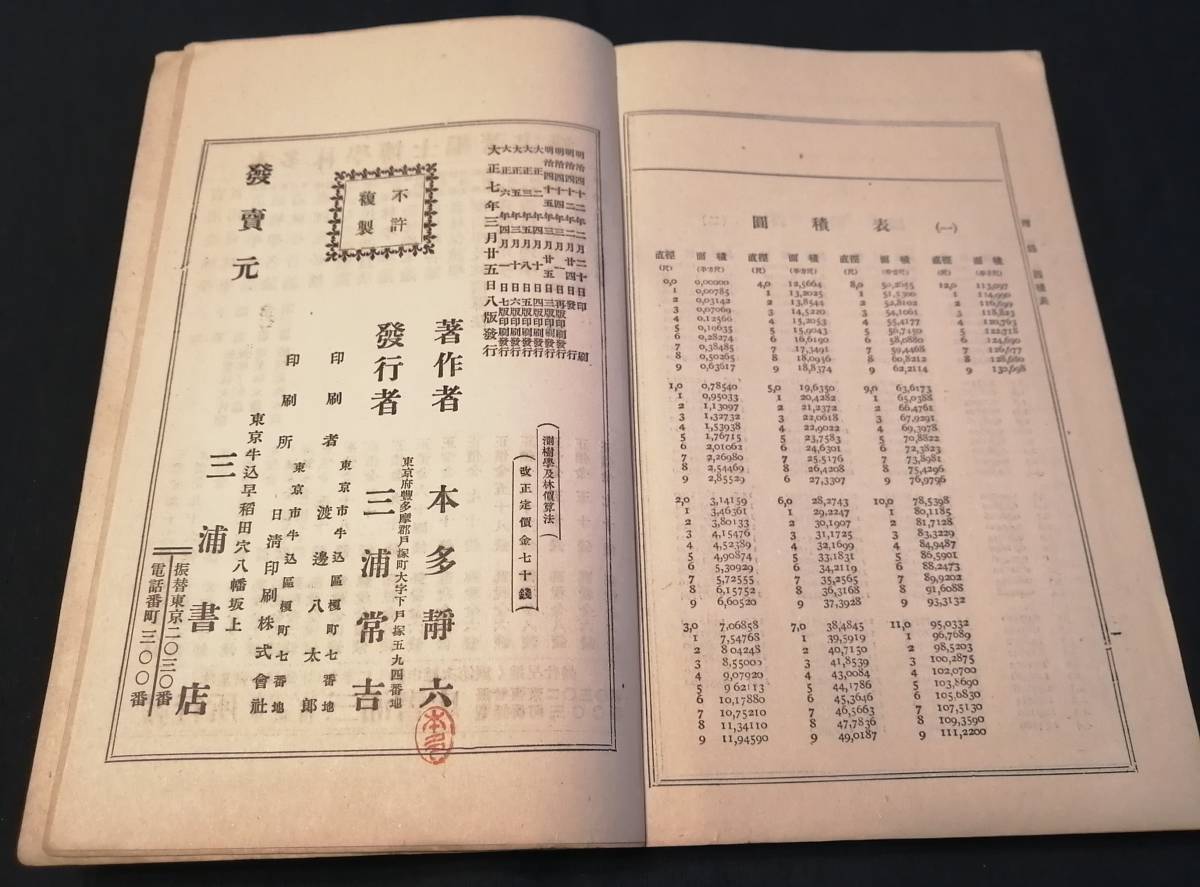 附錄 圓積表
(二) 圓積表 (一)
直徑 面積 直徑 面積 直徑 面積 直徑 面積
(尺) (平方尺) (尺) (平方尺) (尺) (平方尺) (尺) (平方尺)
0,0 0,00000 4,0 12,5664 8,0 50,2655 12,0 113,097
1 0,00785 1 13,2025 1 51,5300 1 114,990
2 0,03142 2 13,8544 2 52,8102 2 116,899
3 0,07069 3 14,5220 3 54,1061 3 118,823
4 0,12566 4 15,2053 4 55,4177 4 120,763
5 0,19635 5 15,9043 5 56,7450 5 122,718
6 0,28274 6 16,6190 6 58,0880 6 124,690
7 0,38485 7 17,3491 7 59,4468 7 126,677
8 0,50265 8 18,0956 8 60,8212 8 128,680
9 0,63617 9 18,8374 9 62,2114 9 130,698
1,0 0,78540 5,0 19,6350 9,0 63,6173
1 0,95033 1 20,4282 1 65,0388
2 1,13097 2 21,2372 2 66,4761
3 1,32732 3 22,0618 3 67,9291
4 1,53938 4 22,9022 4 69,3978
5 1,76715 5 23,7583 5 70,8822
6 2,01062 6 24,6301 6 72,3823
7 2,26980 7 25,5176 7 73,8981
8 2,54469 8 26,4208 8 75,4296
9 2,85529 9 27,3307 9 76,9796
2,0 3,14159 6,0 28,2743 10,0 78,5398
1 3,46361 1 29,2247 1 80,1185
2 3,80133 2 30,1907 2 81,7128
3 4,15476 3 31,1725 3 83,3229
4 4,52389 4 32,1699 4 84,9487
5 4,90874 5 33,1831 5 86,5901
6 5,30929 6 34,2119 6 88,2473
7 5,72555 7 35,2565 7 89,9202
8 6,15752 8 36,3168 8 91,6088
9 6,60520 9 37,3928 9 93,3132
3,0 7,06858 7,0 38,4845 11,0 95,0332
1 7,54768 1 39,5919 1 96,7689
2 8 04248 2 40,7150 2 98,5203
3 8,55000 3 41,8539 3 100,2875
4 9,07920 4 43,0084 4 102,0700
5 9 62113 5 44,1786 5 103,8690
6 10,17880 6 45,3646 6 105,6830
7 10,75210 7 46,5663 7 107,5130
8 11,34110 8 47,7836 8 109,3590
9 11,94590 9 49,0187 9 111,2200
明治四十二年二月二十日印刷
明治四十二年二月廿四日發行
明治四十四年三月一日再版印刷發行
明治四十五年三月廿五日三版印刷發行
大正二年四月十日四版印刷發行
大正三年五月八日五版印刷發行
大正五年三月十日六版印刷發行
大正六年四月一日七版印刷發行
大正七年三月廿五日八版發行
不許
複製
測樹學及林價算法
(改正定價金七十錢)
著作者 本多靜六
東京府豐多摩郡戶塚町大字下戶塚五九四番地
發行者 三浦常吉
東京市牛込區榎町七番地
印刷者 渡邊八太郎
東京市牛込區榎町七番地
印刷所 日清印刷株式會社
發賣元
東京牛込早稻田穴八幡坂上
三浦書店
振替東京二〇三〇番
電話番町三〇〇番